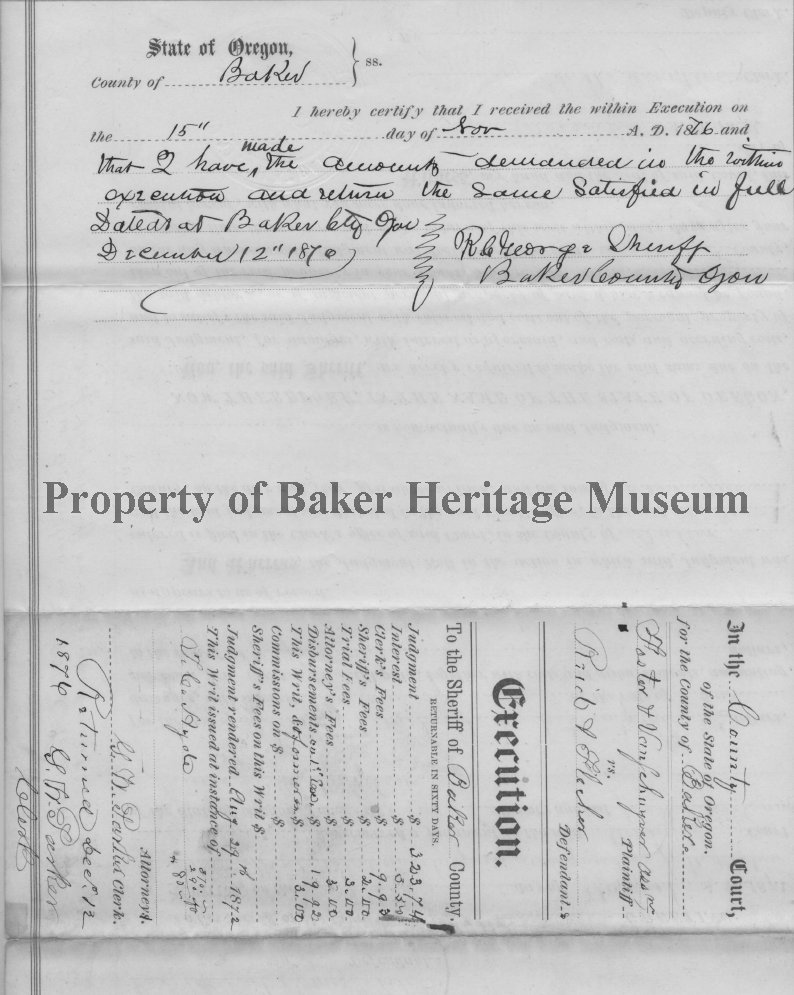 State of Oregon,
County of Baker } ss.
I hereby certify that I received the within Execution on
the 15" day of Nov A. D. 1876 and
that I have made the amount demanded in the within
execution and return the same Satisfied in full
Dated at Baker City Ogn
December 12" 1876
R C George Sheriff
Baker County Ogon
Property of Baker Heritage Museum
In the County Court,
of the State of Oregon.
for the County of Baker
Plaintiff
vs.
Defendant s
Execution.
To the Sheriff of Baker County.
RETURNABLE IN SIXTY DAYS.
Judgment $ 323.74
Interest $
Clerk's Fees $ 9.93
Sheriff's Fees $ 2.00
Trial Fees $ 3.00
Attorney's Fees $
Disbursements $ 19.92
This Writ, $ 3.00
Commissions on $
Sheriff's Fees on this Writ $
Judgment rendered Aug 29th 187
This Writ issued at instance of
Hyde
Attorneys.
Clerk.
Returned Dec 12
1876
Clerk